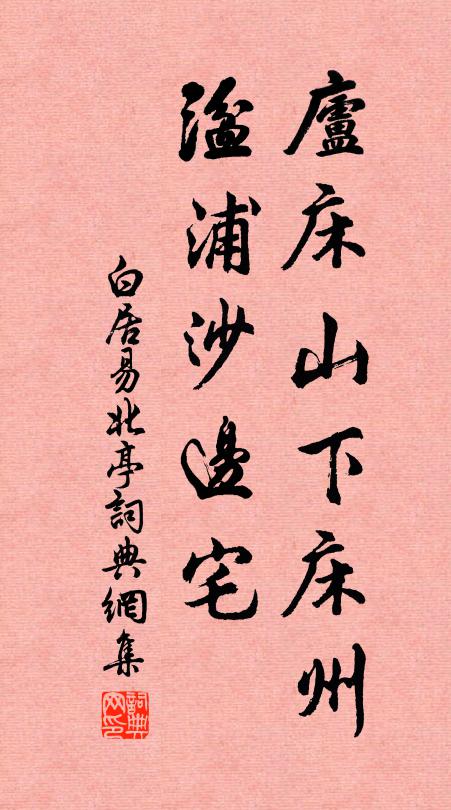 廬床山下床州
湓浦沙邊宅
白居易北亭詞典網集
詞典
网印